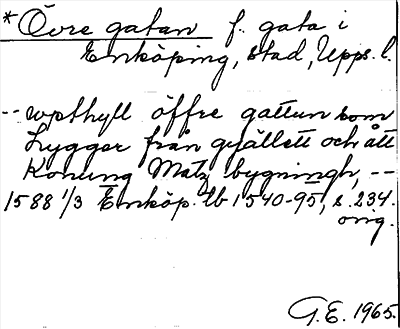 * Övre gatan f. gata i
Enköping, stad, Upps. l.
-- wpthyll öffre gattun som
Lygger från gjällett och ått
Konung Matz bygningh, --
1588 1/3 Enköp. tb 1540-95, s. 234.
orig.
G.E. 1965.